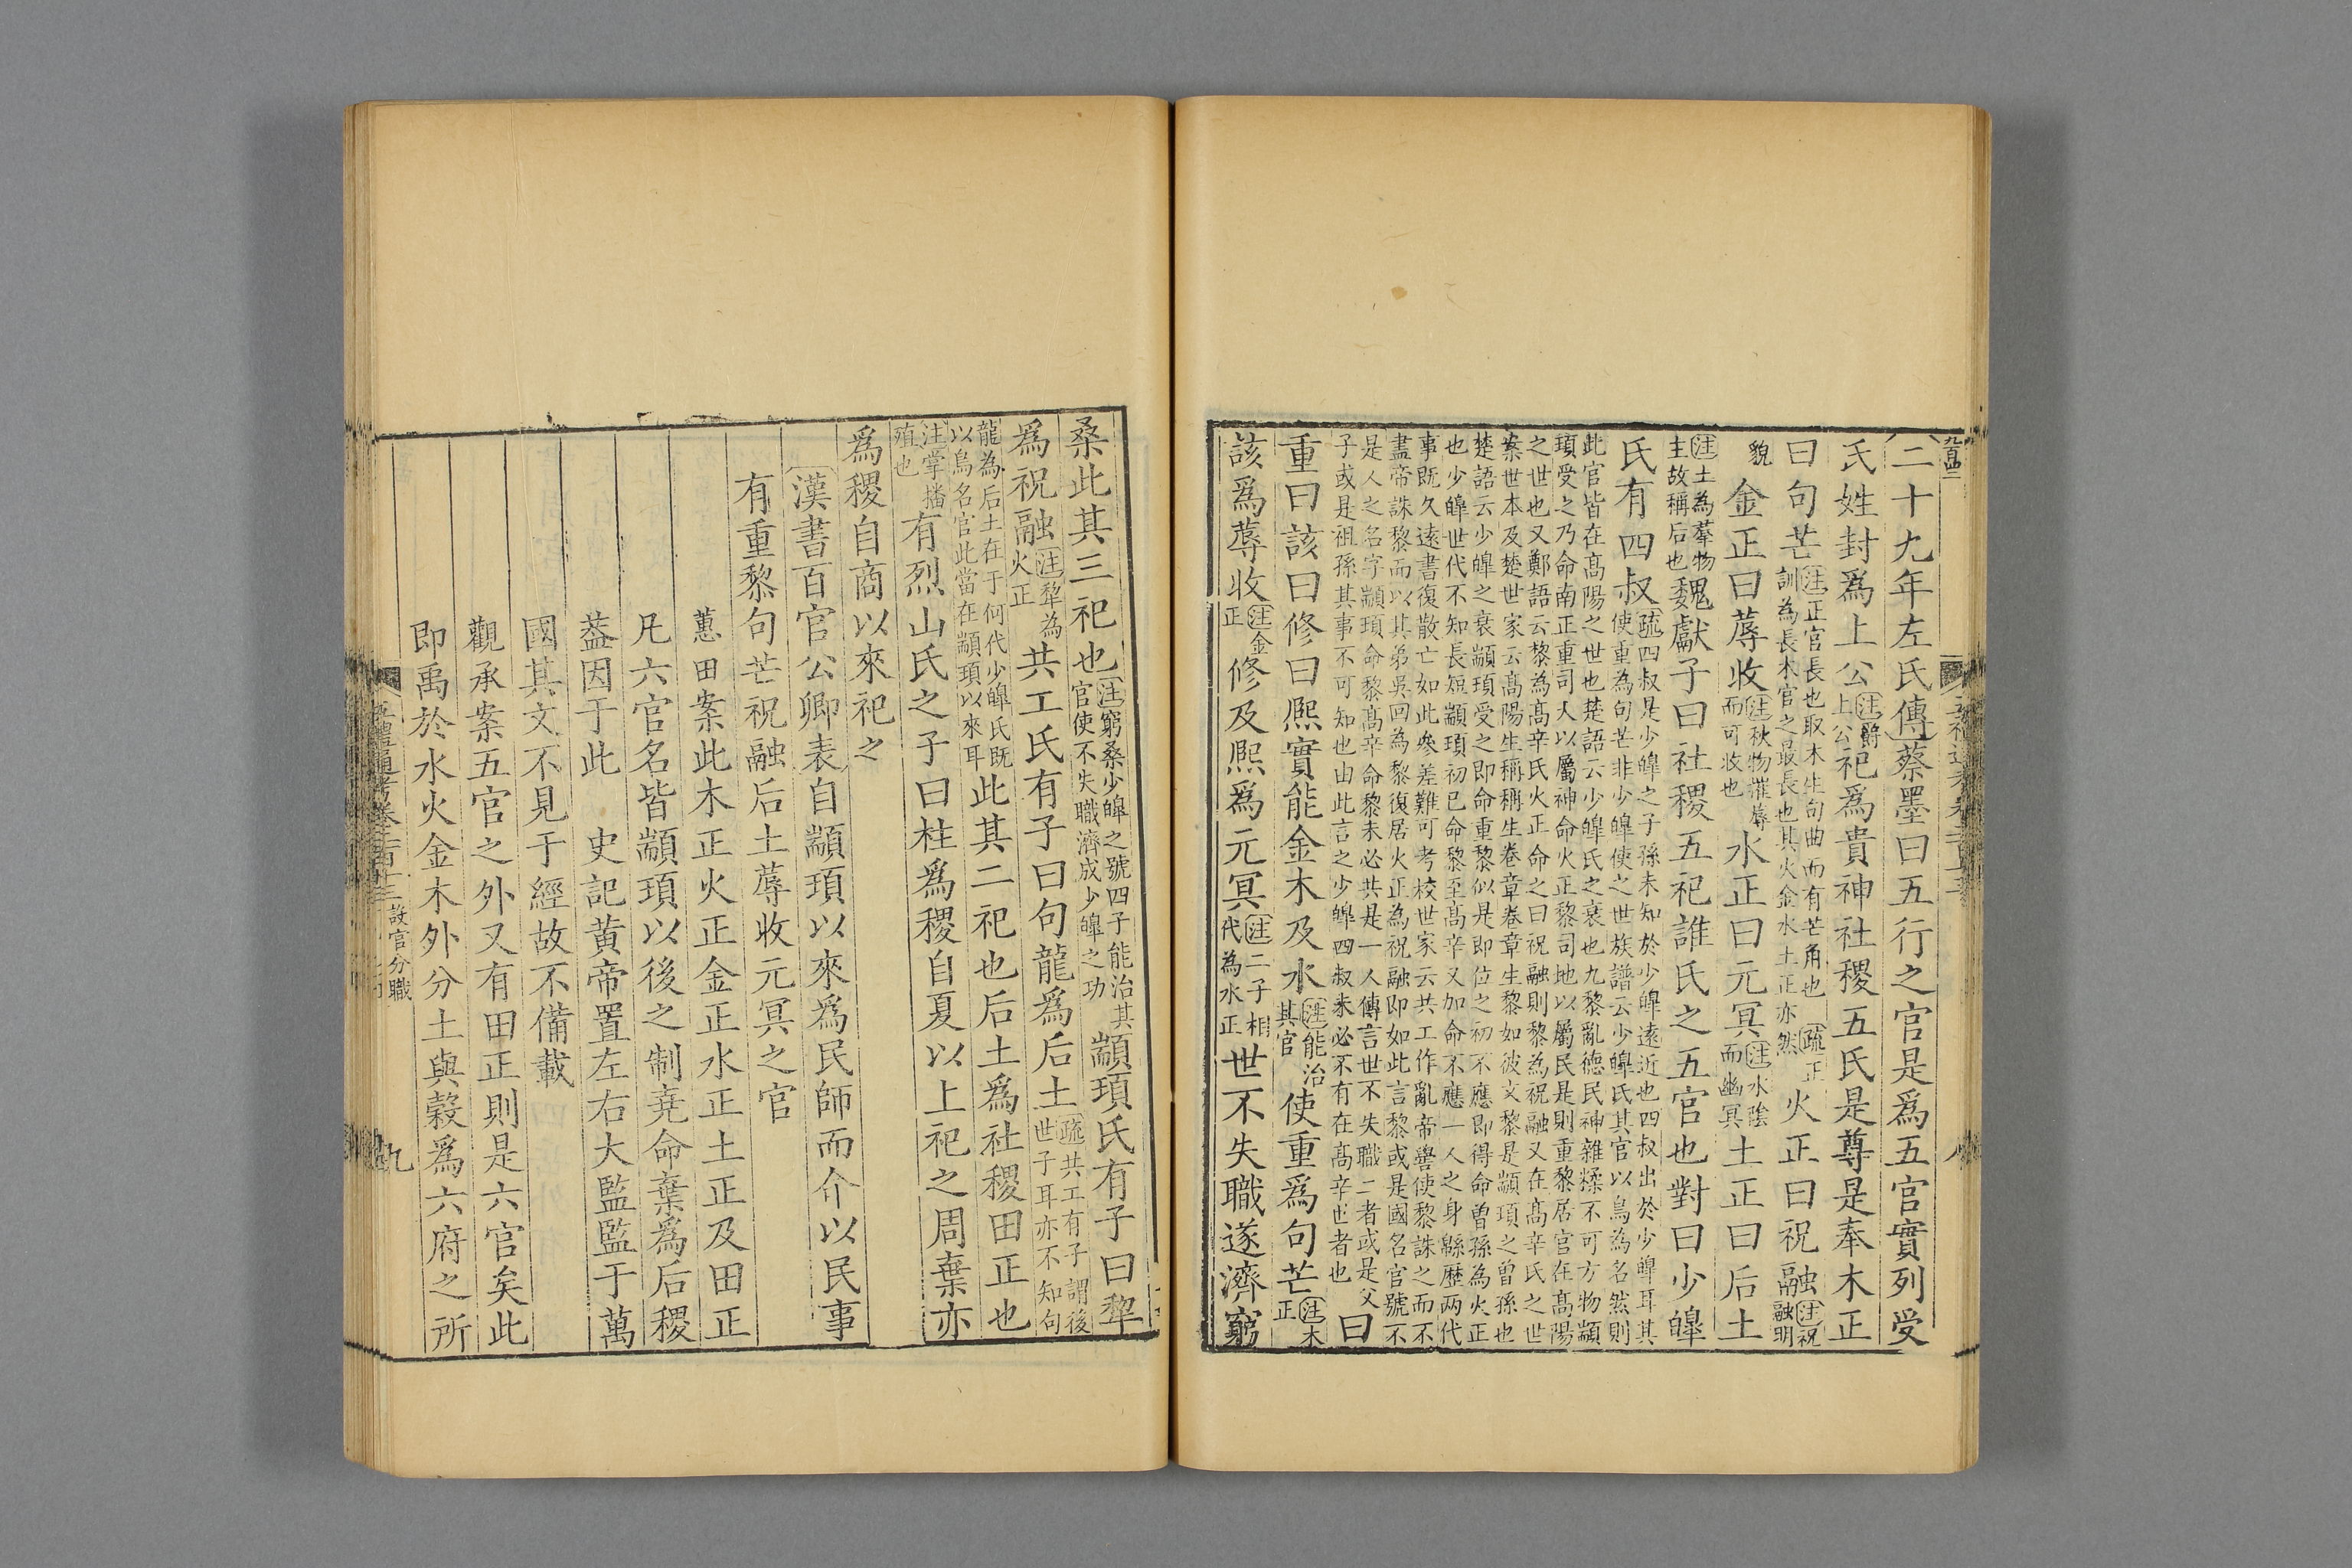 二十九年左氏傳蔡墨曰五行之官是爲五官實列受
氏姓封爲上公注爵上公祀爲貴神社稷五氏是尊是奉木正
曰句芒注正官長也取木生句曲而有芒角也疏正訓為長木官之最長也其火金水土正亦然火正曰祝融注祝融明
貌金正曰蓐收注秋物摧蓐而可收也水正曰元冥注水陰而幽冥土正曰后土
注土為羣物主故稱后也魏獻子曰社稷五祀誰氏之五官也對曰少皥
氏有四叔疏四叔是少皥之子孫未知於少皥遠近也四叔出於少皥耳其使重為句芒非少皥使之世族譜云少皥氏其官以鳥為名然則
此官皆在髙陽之世也楚語云少皥氏之衰也九黎亂德民神雜糅不可方物顓
頊受之乃命南正重司天以屬神命火正黎司地以屬民是則重黎居官在髙陽
之世也又鄭語云黎為髙辛氏火正命之曰祝融則黎為祝融又在髙辛氏之世
案世本及楚世家云髙陽生稱稱生卷章卷章生黎如彼文黎是顓頊之曾孫也
楚語云少皥之衰顓頊受之即命重黎似是即位之初不應即得命曾孫為火正
也少皥世代不知長短顓頊初已命黎至髙辛又加命不應一人之身緜歴兩代
事既久遠書復散亡如此參差難可考校世家云共工作亂帝嚳使黎誅之而不
盡帝誅黎而以其弟吳回為黎復居火正為祝融即如此言黎或是國名官號不
是人之名字顓頊命黎髙辛命黎未必共是一人傳言世不失職二者或是父
子或是祖孫其事不可知也由此言之少皥四叔未必不有在髙辛世者也曰
重曰該曰修曰熙實能金木及水注能治其官使重爲句芒注木正
該爲蓐收注金正修及熙爲元冥注二子相代為水正世不失職遂濟窮
桑此其三祀也注窮桑少皥之號四子能治其官使不失職濟成少皥之功顓頊氏有子曰犂
爲祝融注犂為火正共工氏有子曰句龍爲后土疏共工有子謂後世子耳亦不知句
龍為后土在于何代少皥氏既以鳥名官此當在顓頊以來耳此其二祀也后土爲社稷田正也
注掌播殖也有烈山氏之子曰柱爲稷自夏以上祀之周棄亦
爲稷自商以來祀之
漢書百官公卿表自顓頊以來爲民師而介以民事
有重黎句芒祝融后土蓐收元冥之官
蕙田案此木正火正金正水正土正及田正
凡六官名皆顓頊以後之制堯命棄爲后稷
葢因于此　史記黃帝置左右大監監于萬
國其文不見于經故不備載
觀承案五官之外又有田正則是六官矣此
即禹於水火金木外分土與穀爲六府之所
五禮通考卷二百十三
設官分職
九